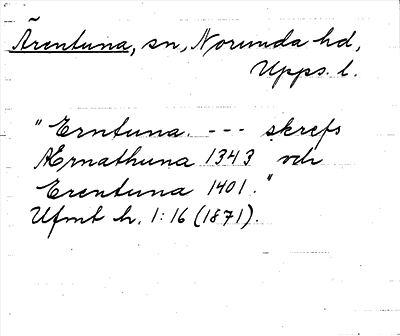 Ärentuna, sn, Norunda hd,
Upps. l.
"Erntuna. --- skrefs
Ærnathuna 1343 och
Erentuna 1401."
Ufmt h. 1:16 (1871).